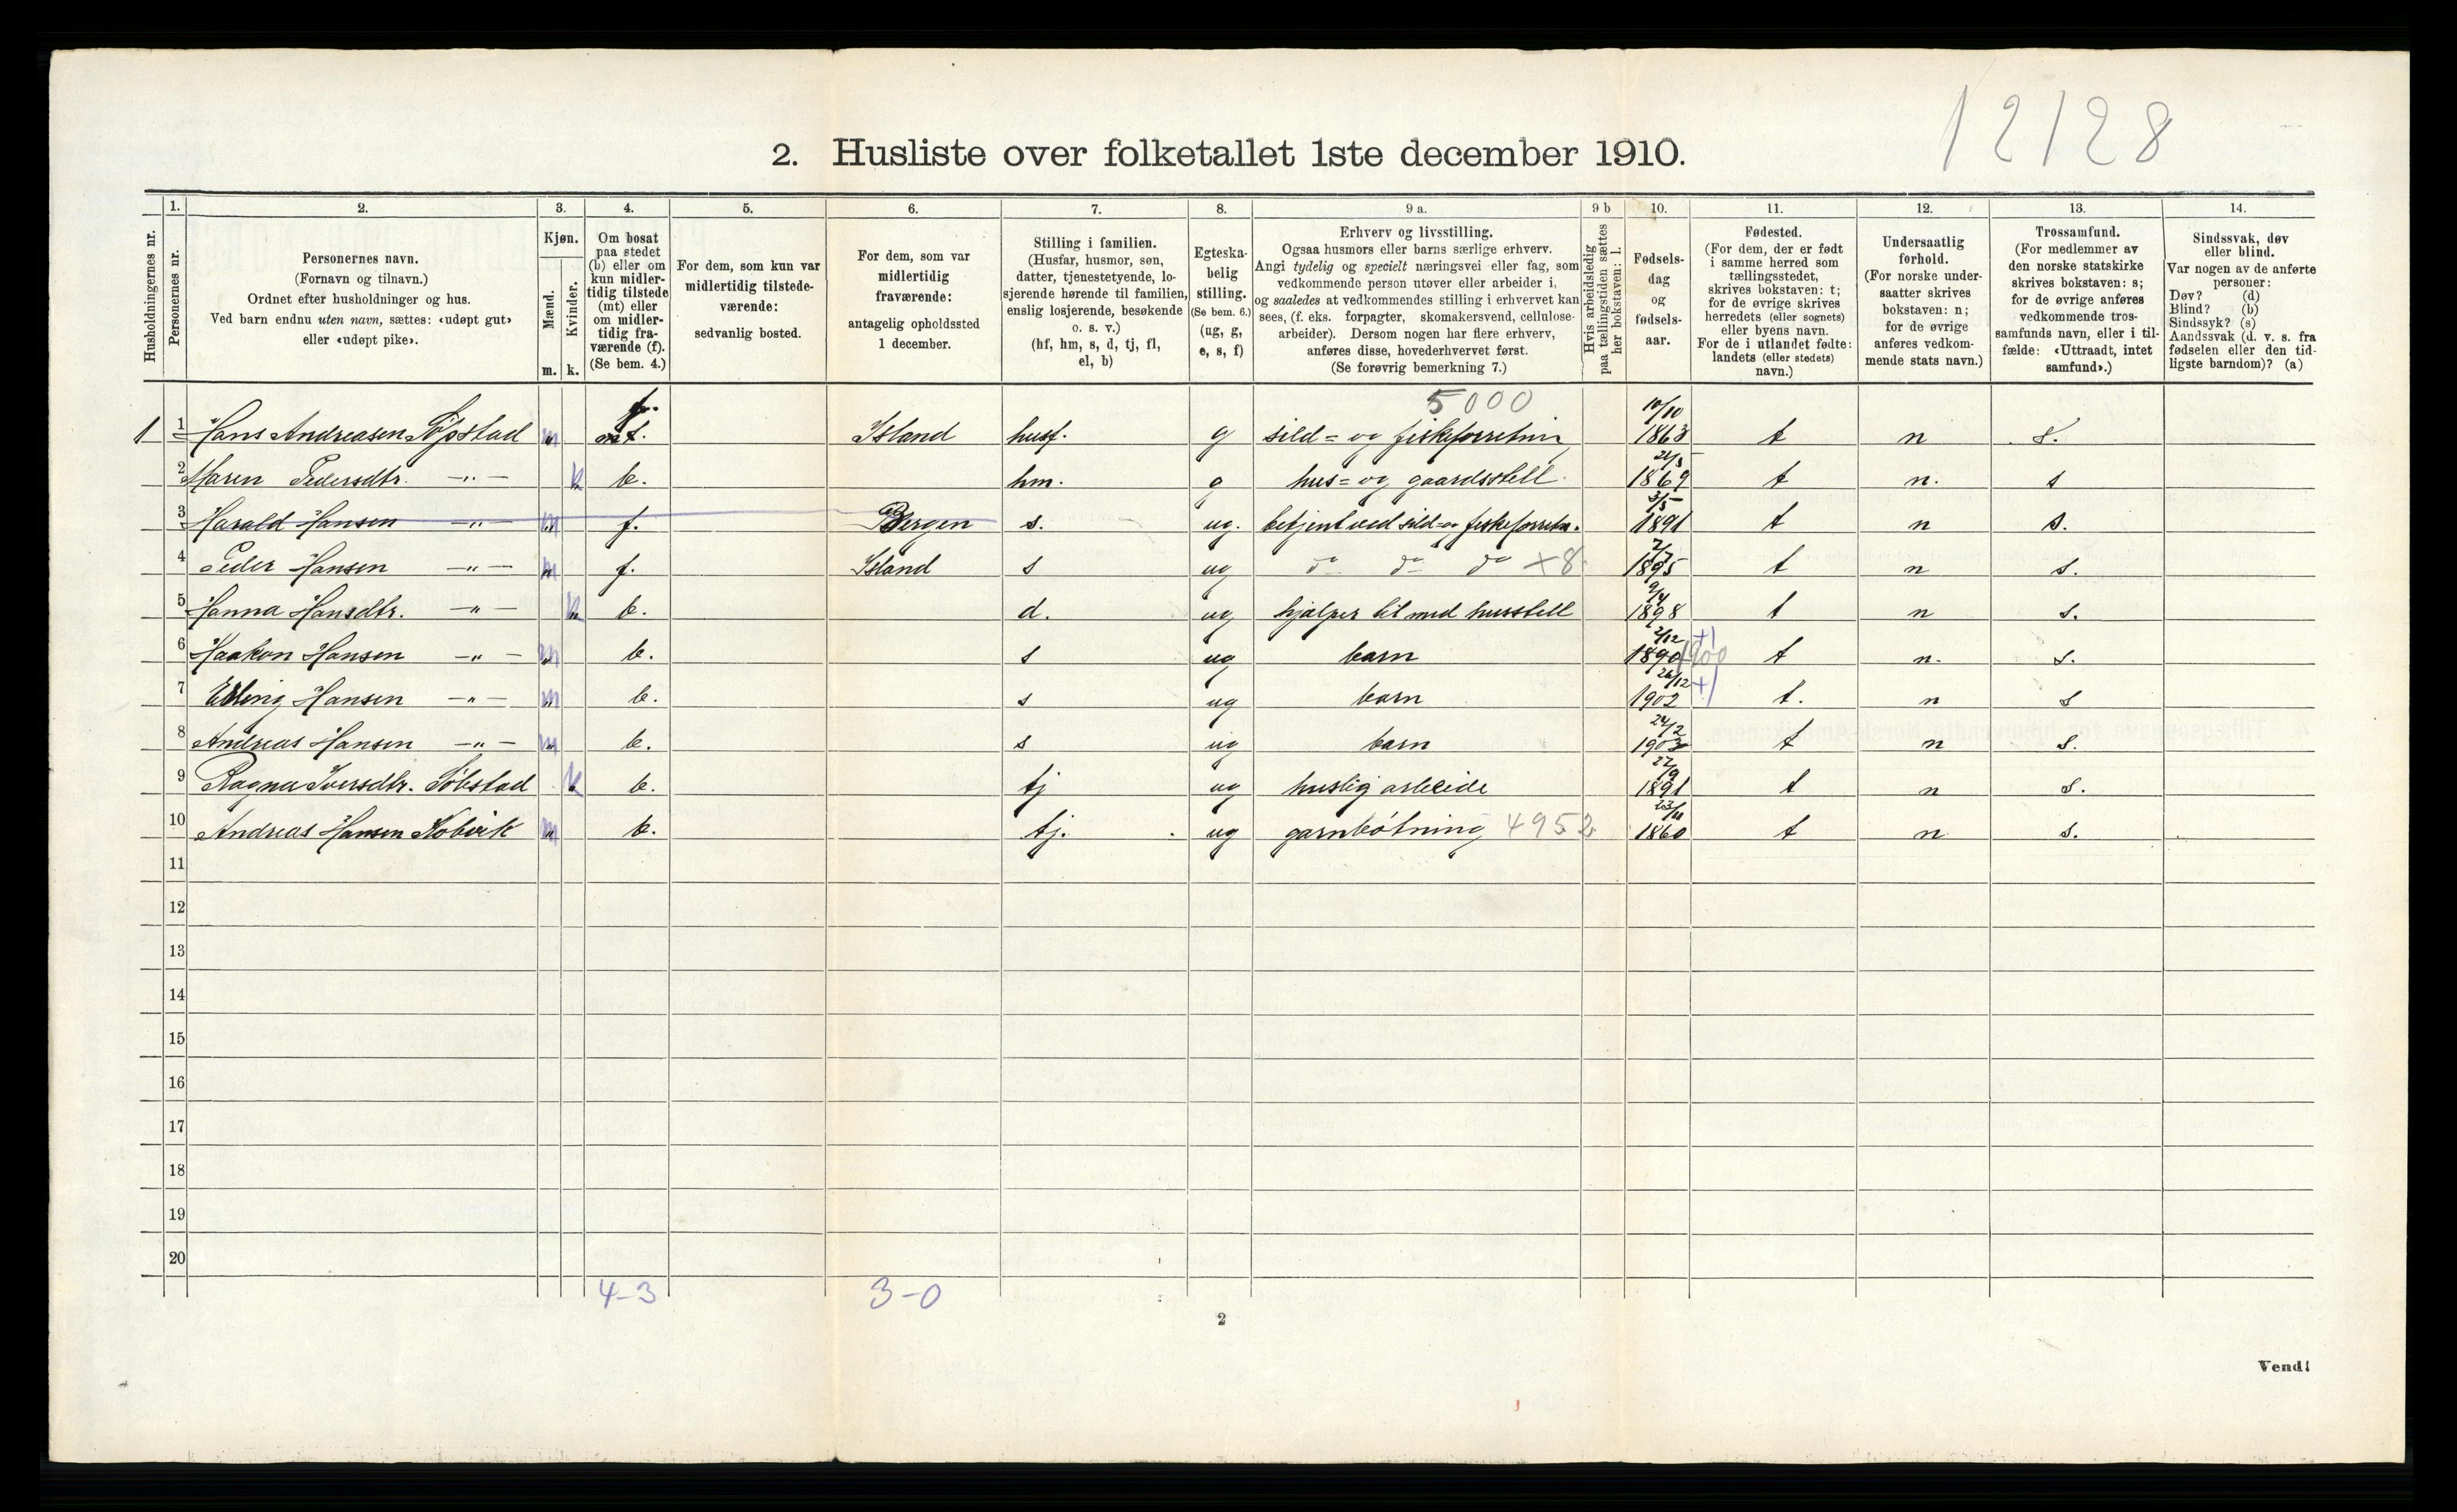 12128
2. Husliste over folketallet 1ste december 1910.
Husholdningernes nr.
1.
Personernes nr.
2.
Personernes navn.
(Fornavn og tilnavn.)
Ordnet efter husholdninger og hus.
Ved barn endnu uten navn, sættes: «udøpt gut»
eller «udøpt pike».
3.
Kjøn.
Mænd.
Kvinder.
m. k.
4.
Om bosat
paa stedet
(b) eller om
kun midler-
tidig tilstede
(mt) eller
om midler-
tidig fra-
værende (f).
(Se bem. 4.)
5.
For dem, som kun var
midlertidig tilstede-
værende:
sedvanlig bosted.
6.
For dem, som var
midlertidig
fraværende:
antagelig opholdssted
1 december.
7.
Stilling i familien.
(Husfar, husmor, søn,
datter, tjenestetyende, lo-
sjerende hørende til familien,
enslig losjerende, besøkende
o. s. v.)
(hf, hm, s, d, tj, fl,
el, b)
8.
Egteska-
belig
stilling.
(Se bem. 6.)
(ug, g,
e, s, f)
9 a.
Erhverv og livsstilling.
Ogsaa husmors eller barns særlige erhverv.
Angi tydelig og specielt næringsvei eller fag, som
vedkommende person utøver eller arbeider i,
og saaledes at vedkommendes stilling i erhvervet kan
sees, (f. eks. forpagter, skomakersvend, cellulose-
arbeider). Dersom nogen har flere erhverv,
anføres disse, hovederhvervet først.
(Se forøvrig bemerkning 7.)
9 b
Hvis arbeidsledig
paa tællingstiden sættes
her bokstaven: l.
10.
Fødsels-
dag
og
fødsels-
aar.
11.
Fødested.
(For dem, der er født
i samme herred som
tællingsstedet,
skrives bokstaven: t;
for de øvrige skrives
herredets (eller sognets)
eller byens navn.
For de i utlandet fødte:
landets (eller stedets)
navn.)
12.
Undersaatlig
forhold.
(For norske under-
saatter skrives
bokstaven: n;
for de øvrige
anføres vedkom-
mende stats navn.)
13.
Trossamfund.
(For medlemmer av
den norske statskirke
skrives bokstaven: s;
for de øvrige anføres
vedkommende tros-
samfunds navn, eller i til-
fælde: «Uttraadt, intet
samfund».)
14.
Sindssvak, døv
eller blind.
Var nogen av de anførte
personer:
Døv? (d)
Blind? (b)
Sindssyk? (s)
Aandssvak (d. v. s. fra
fødselen eller den tid-
ligste barndom)? (a)
5000
1 1 Hans Andreasen Søpstad m f. mt. Island husf. g sild= og fiskeforretnin 10/10 1863 t n s.
2 Maren Pedersdtr. —"— k b. hm. g hus= og gaardsstell 1869 t n. s
3 Harald Hansen —"— m f. Bergen s. ug. betjent ved sild= og fiskeforretn. 3/5 1891 t n s.
4 Peder Hansen —"— m f. Island s ug do do do +8 2/7 1895 t n s.
5 Hanna Hansdtr. —"— k b. d. ug hjælper til med husstell 9/4 1898 t n s.
6 Haakon Hansen —"— m b. s ug barn 2/12 1890 1900 +1 t n. s.
7 Erling Hansen —"— m b. s ug barn 26/12 1902 +1 t. n s
8 Andreas Hansen —"— m b. s ug barn 24/12 1903 t n s.
9 Ragna Iversdtr. Søbstad k b. tj ug huslig arbeide 27/9 1891 t n s.
10 Andreas Hansen Kobvik m b. tj. ug garnbøtning 4952 23/11 1860 t n s.
11
12
13
14
15
16
17
18
19
20
4-3 3-0
2
Vend!